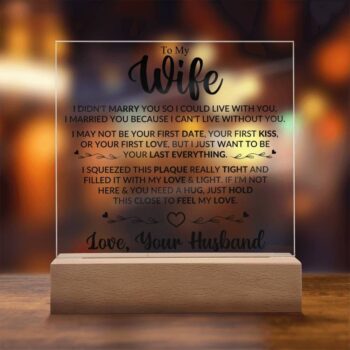 To My
Wife
I DIDN'T MARRY YOU SO I COULD LIVE WITH YOU,
I MARRIED YOU BECAUSE I CAN'T LIVE WITHOUT YOU.
I MAY NOT BE YOUR FIRST DATE, YOUR FIRST KISS,
OR YOUR FIRST LOVE, BUT I JUST WANT TO BE
YOUR LAST EVERYTHING.
I SQUEEZED THIS PLAQUE REALLY TIGHT AND
FILLED IT WITH MY LOVE & LIGHT. IF I'M NOT
HERE & YOU NEED A HUG, JUST HOLD
THIS CLOSE TO FEEL MY LOVE.
Love, Your Husband